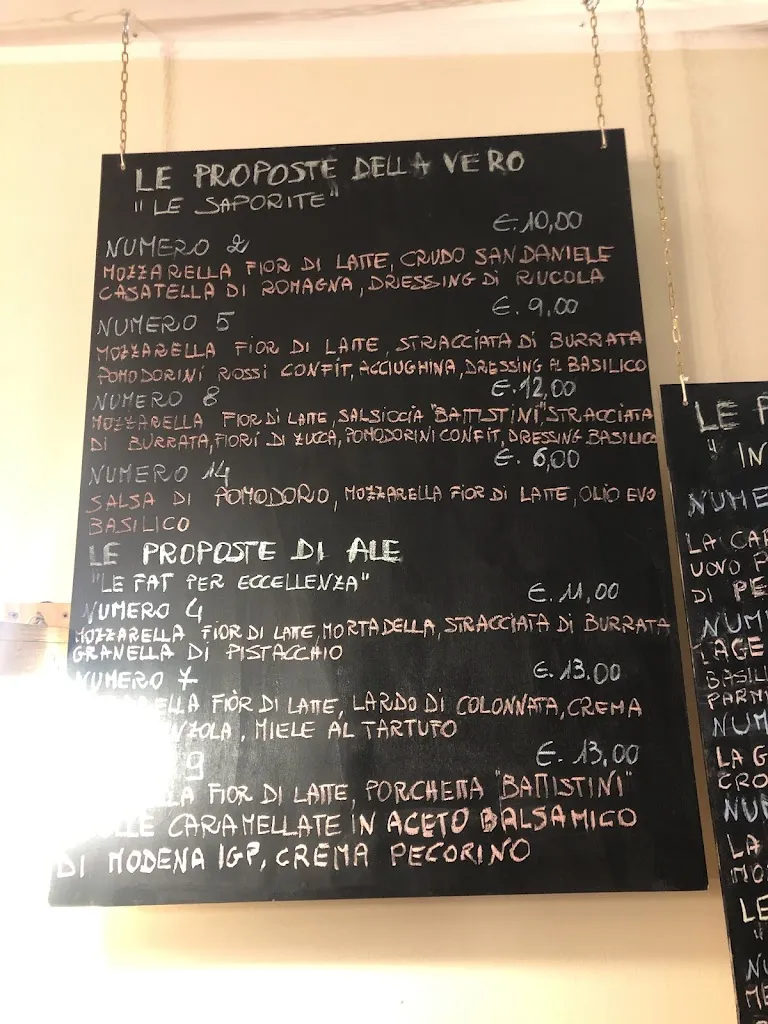 LE PROPOSTE DELLA VERO
"LE SAPORITE"
€. 10,00
NUMERO 2
MOZZARELLA FIOR DI LATTE, CRUDO SAN DANIELE
CASATELLA DI ROMAGNA, DRESSING DI RUCOLA
€. 9,00
NUMERO 5
MOZZARELLA FIOR DI LATTE, STRACCIATA DI BURRATA
POMODORINI ROSSI CONFIT, ACCIUGHINA, DRESSING AL BASILICO
€. 12,00
NUMERO 8
MOZZARELLA FIOR DI LATTE, SALSICCIA "BATTISTINI", STRACCIATA
DI BURRATA, FIORI DI ZUCCA, POMODORINI CONFIT, DRESSING BASILICO
€. 6,00
NUMERO 14
SALSA DI POMODORO, MOZZARELLA FIOR DI LATTE, OLIO EVO
BASILICO
LE PROPOSTE DI ALE
"LE FAT PER ECCELLENZA"
€. 11,00
NUMERO 4
MOZZARELLA FIOR DI LATTE, MORTADELLA, STRACCIATA DI BURRATA
GRANELLA DI PISTACCHIO
€. 13,00
NUMERO 7
ELLA FIOR DI LATTE, LARDO DI COLONNATA, CREMA
ZOLA, MIELE AL TARTUFO
€. 13,00
9
LA FIOR DI LATTE, PORCHETTA "BATTISTINI"
LLE CARAMELLATE IN ACETO BALSAMICO
DI MODENA IGP, CREMA PECORINO
LE P
" IN
NUME
LA CAR
UOVO P
DI PE
NUM
LAGE
BASILI
PARMI
NUM
LA G
CRO
NU
LA
MO
LE
"
NU
ME